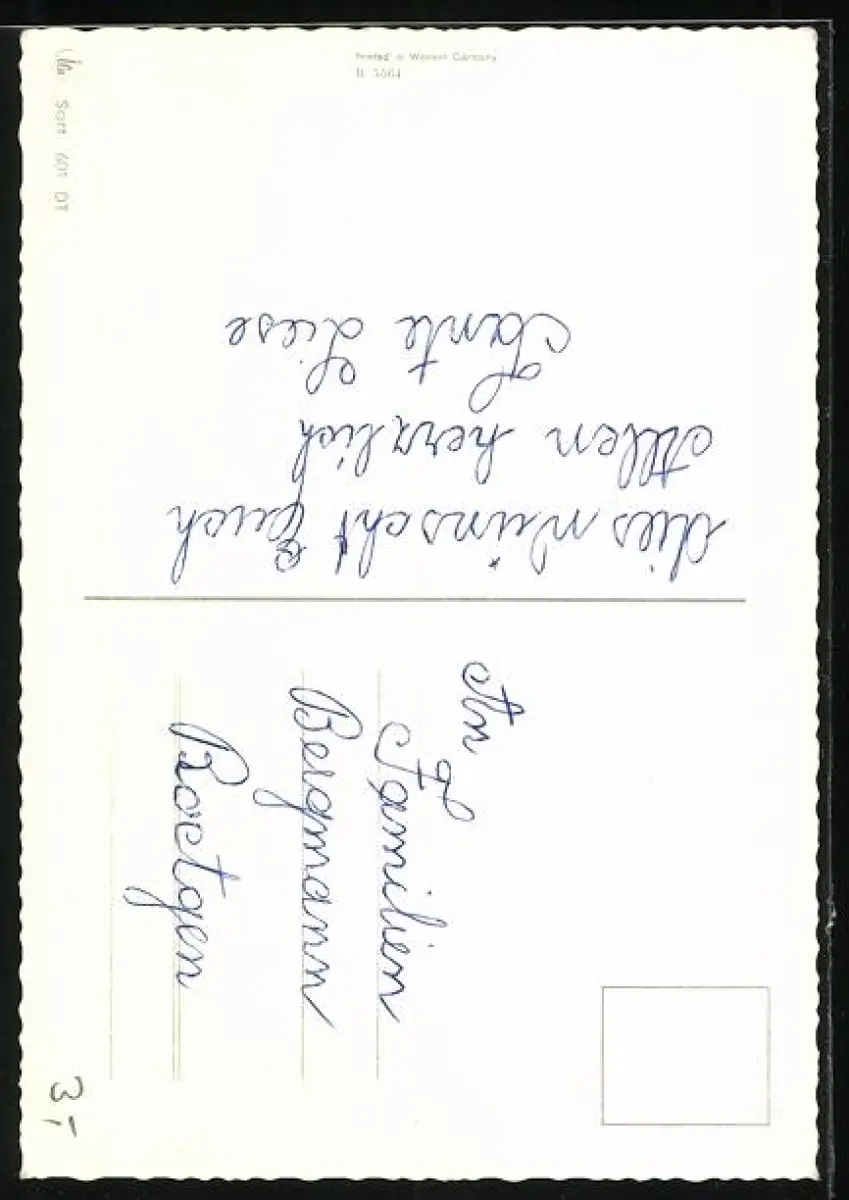 Printed in Western Germany
dies wünscht Euch
Allen herzlich
Tante Liese
An
Familien
Bergmann
Roetgen
3,-